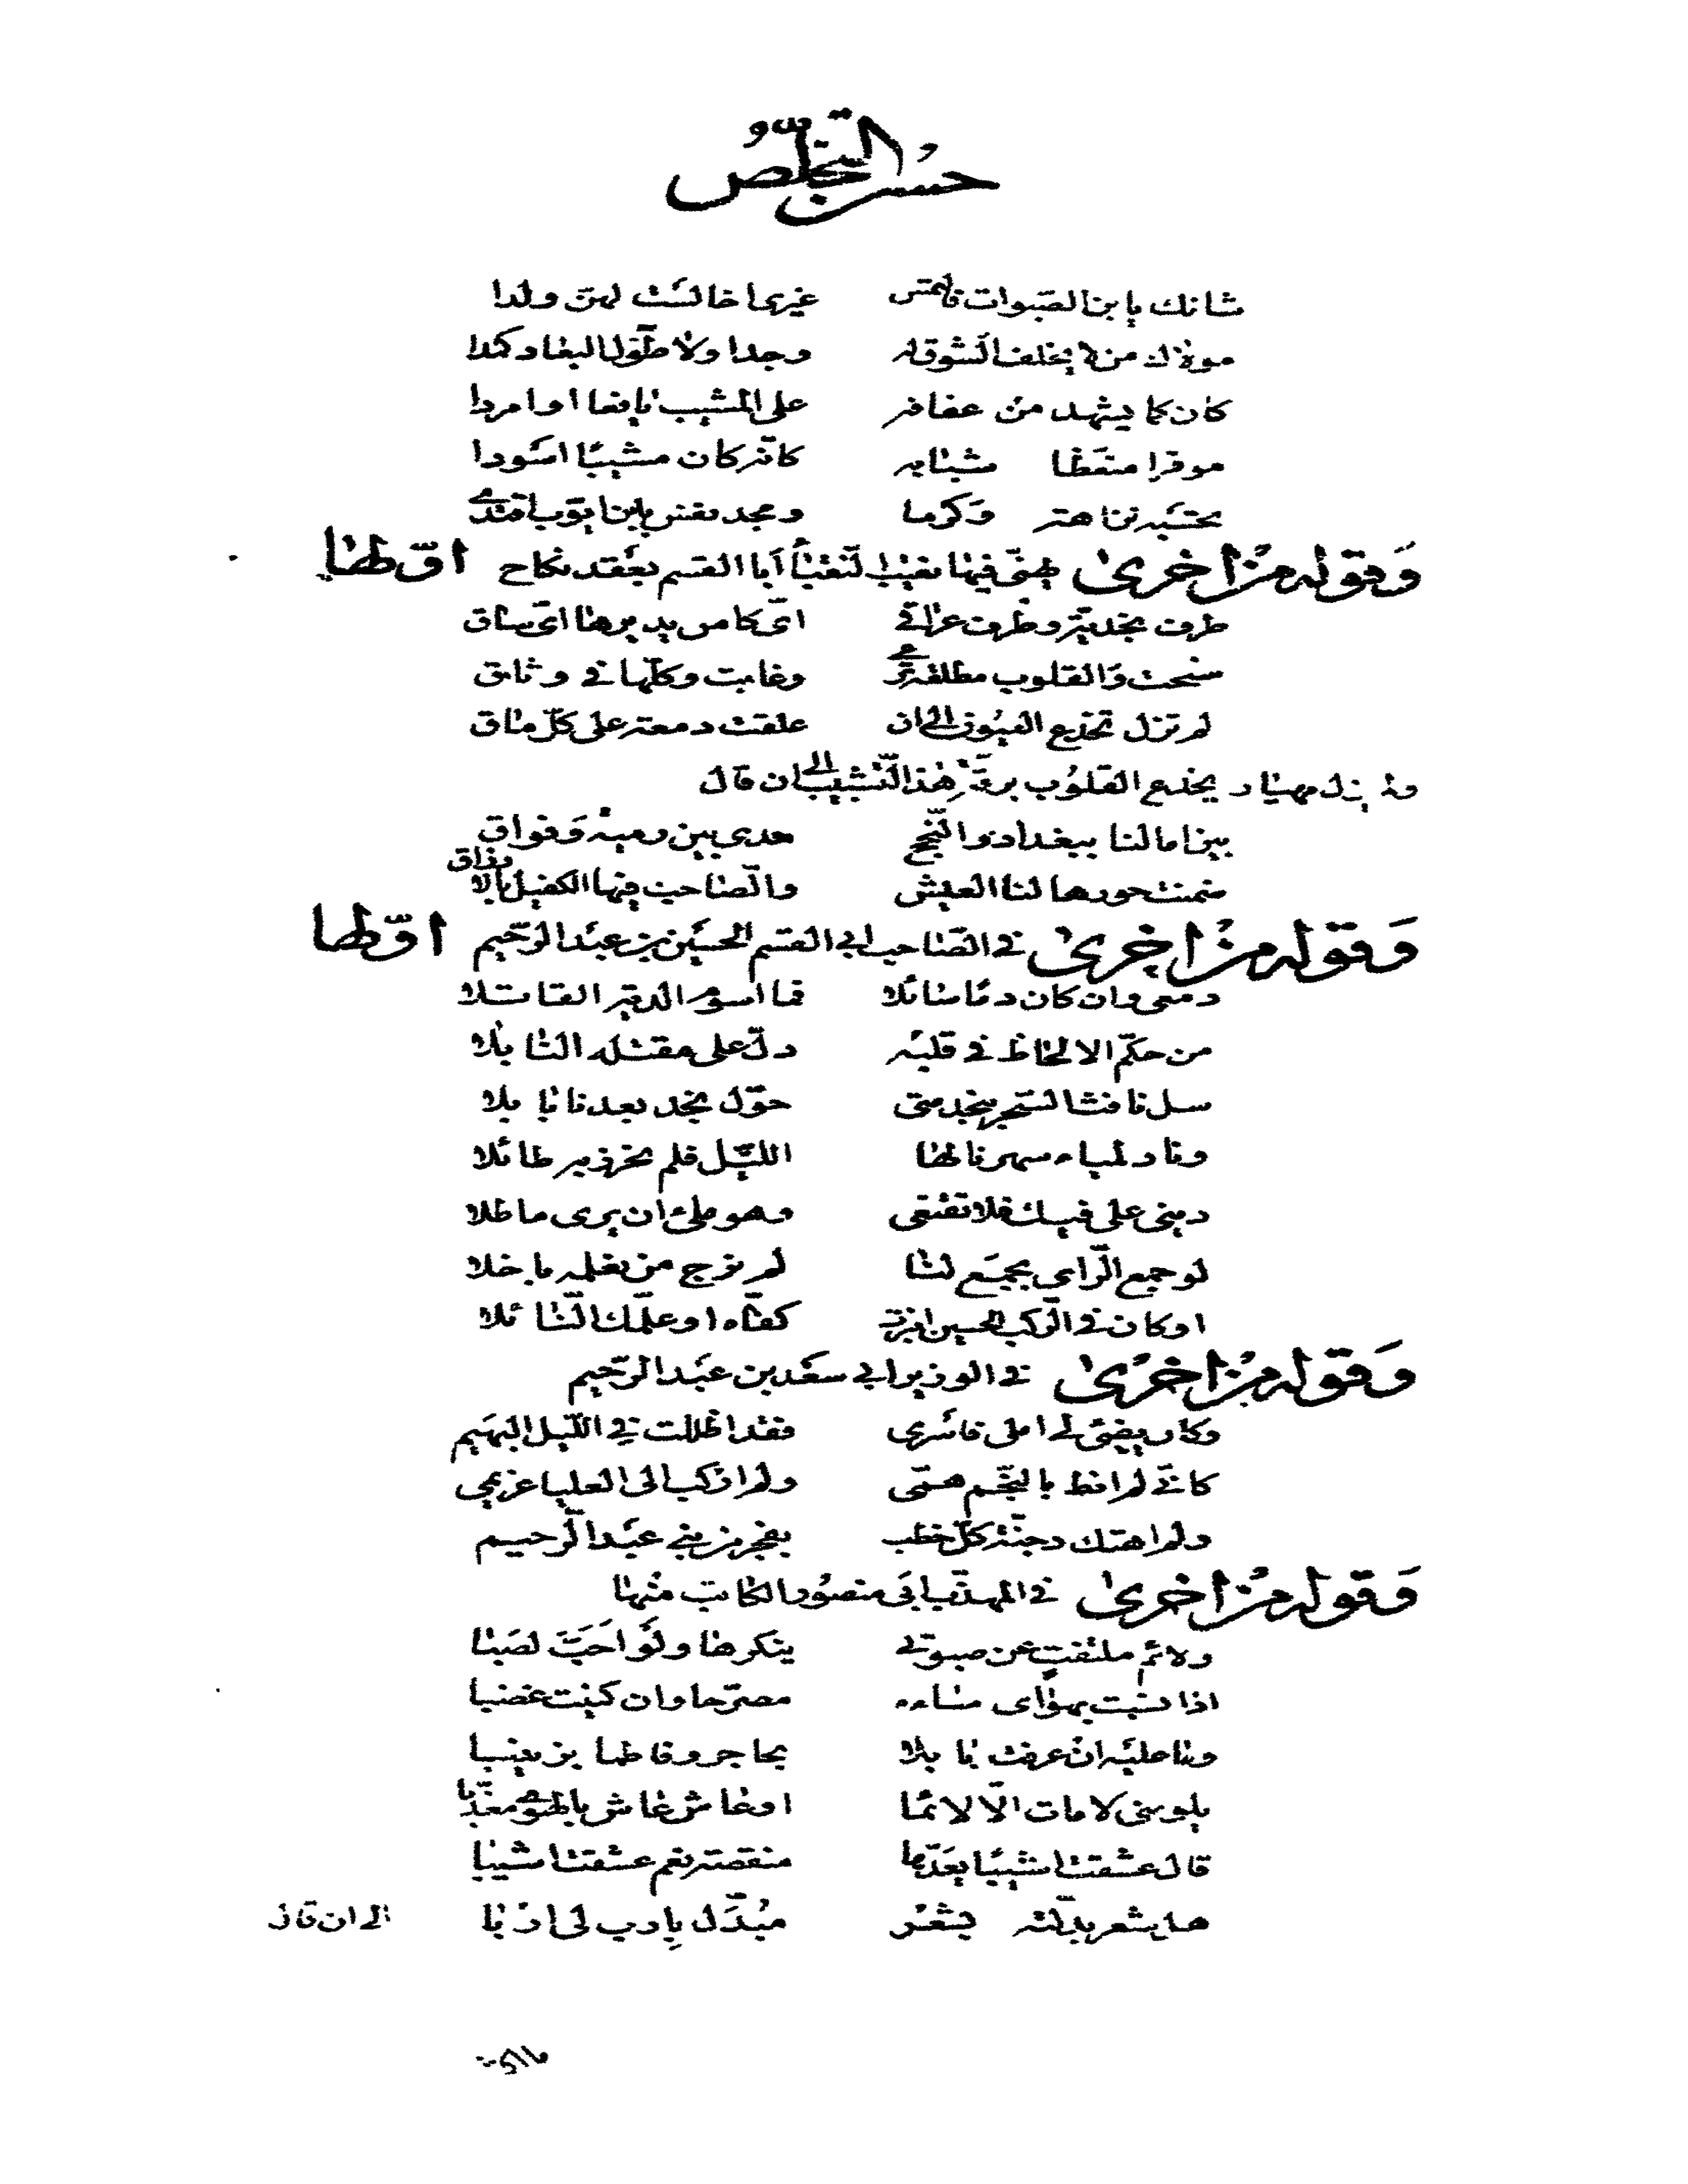 حسن التخلص
شانك يا بن الصبوات فالتمس غيري اخا لست لهن ولدا
مولاك من لا يخلف الشوق له وجدا ولا طول البعاد كمدا
كان كما يشهد من عفافه على المشيب يافعا او امردا
موقرا متعظا شبابه كانه كان مشيبا اسودا
ومجد نفس بابن ايوب اقتدى
وقوله من اخرى يهنئ فيها نقيب النقباء ابا القسم بعقد نكاح اولها
طرف نجدية وظرف عراقي اي كاس يديرها اي ساق
سنحت والقلوب مطلقة وغابت وكلها في وثاق
لم تزل تخدع العيون الى ان علقت دمعة على كل ماق
ولم يزل مهيار يخدع القلوب برقة هذا التشبيب الى ان قال
بيننا مالنا ببغداد والنجح
ضمنت حورها لنا العيش والصاحب فيها الكفيل بالارزاق
وقوله من اخرى في الصاحب ابي القسم الحسين بن عبد الرحيم اولها
دمعي وان كان دما سائلا فما اسوم الدية القاتلا
من حكم الالحاظ في قلبه دل على مقتله النابلا
سل نافث السحر بنجد متى حول نجد بعدنا بابلا
وناد لمياء سهرنا لها الليل فلم نحرز به طائلا
ديني على فيك فلا تقنعي وهو ملئ ان يرى ماطلا
لو جمع الراي بجمع لنا لم نرج من بغلة ما خلا
او كان في الركب الحسين كفاه او علمك النائلا
وقوله من اخرى في الوزير ابي سعد بن عبد الرحيم
وكان يضئ لي املي فاسري فقد اظللت في الليل البهيم
كاني لم انط بالنجم همي ولم اركب الى العليا عزيمي
ولم اهتك دجنة كل خطب بفجر من بني عبد الرحيم
وقوله من اخرى في المهذب ابي منصور الكاتب منها
ولائم ملتفت عن صبوتي ينكرها ولو احب لصبا
اذا نسبت بهواي ساءه مصرحا وان كنيت غضبا
وما عليه ان عرفت بابلا بحاجر وفاطما بزينبا
يلومني لا مات الا لائما او عاش عاش بالهوى معذبا
قال عشقت اشيبا بعدها منقصة نعم عشقت اشيبا
هل شعر بدلته بشعر مبدل بادب لي اربا الى ان قال